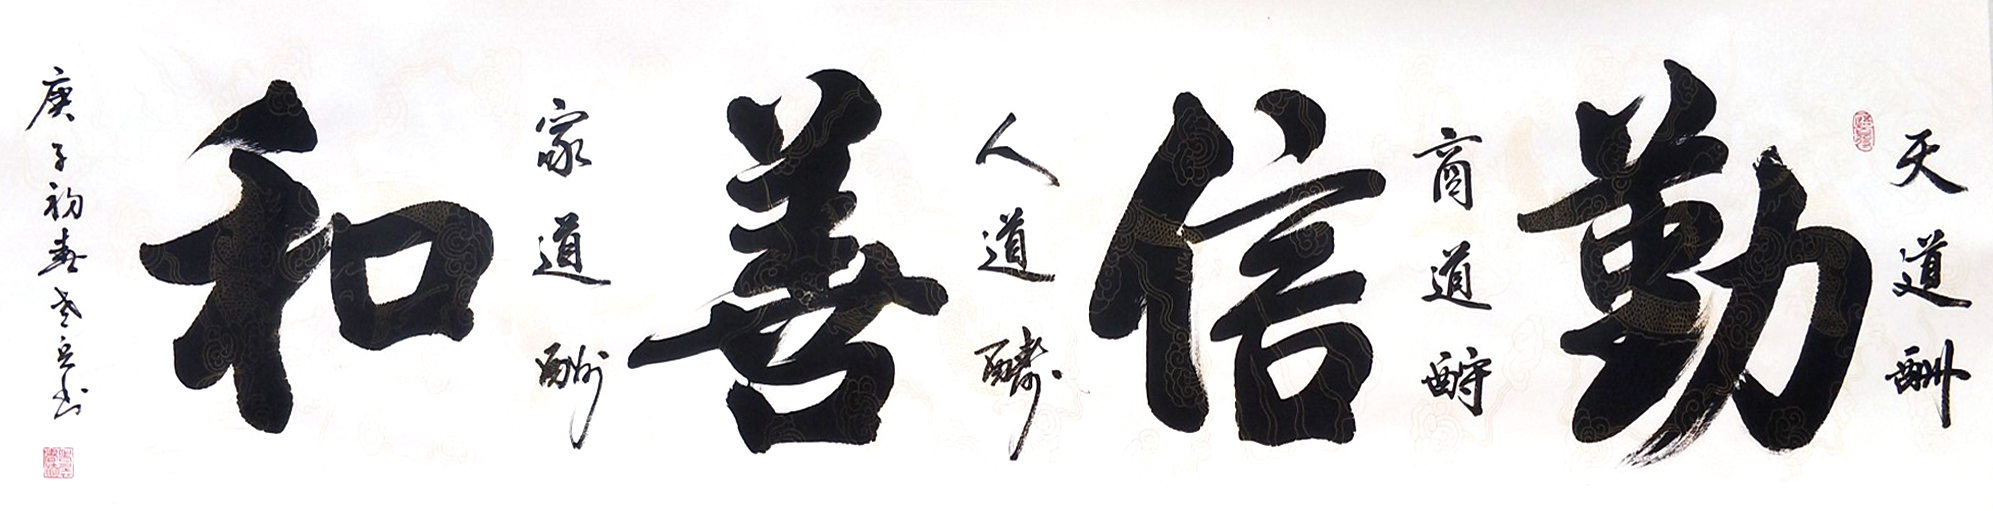 天道酬
勤
商道酬
信
人道酬
善
家道酬
和
庚子初春